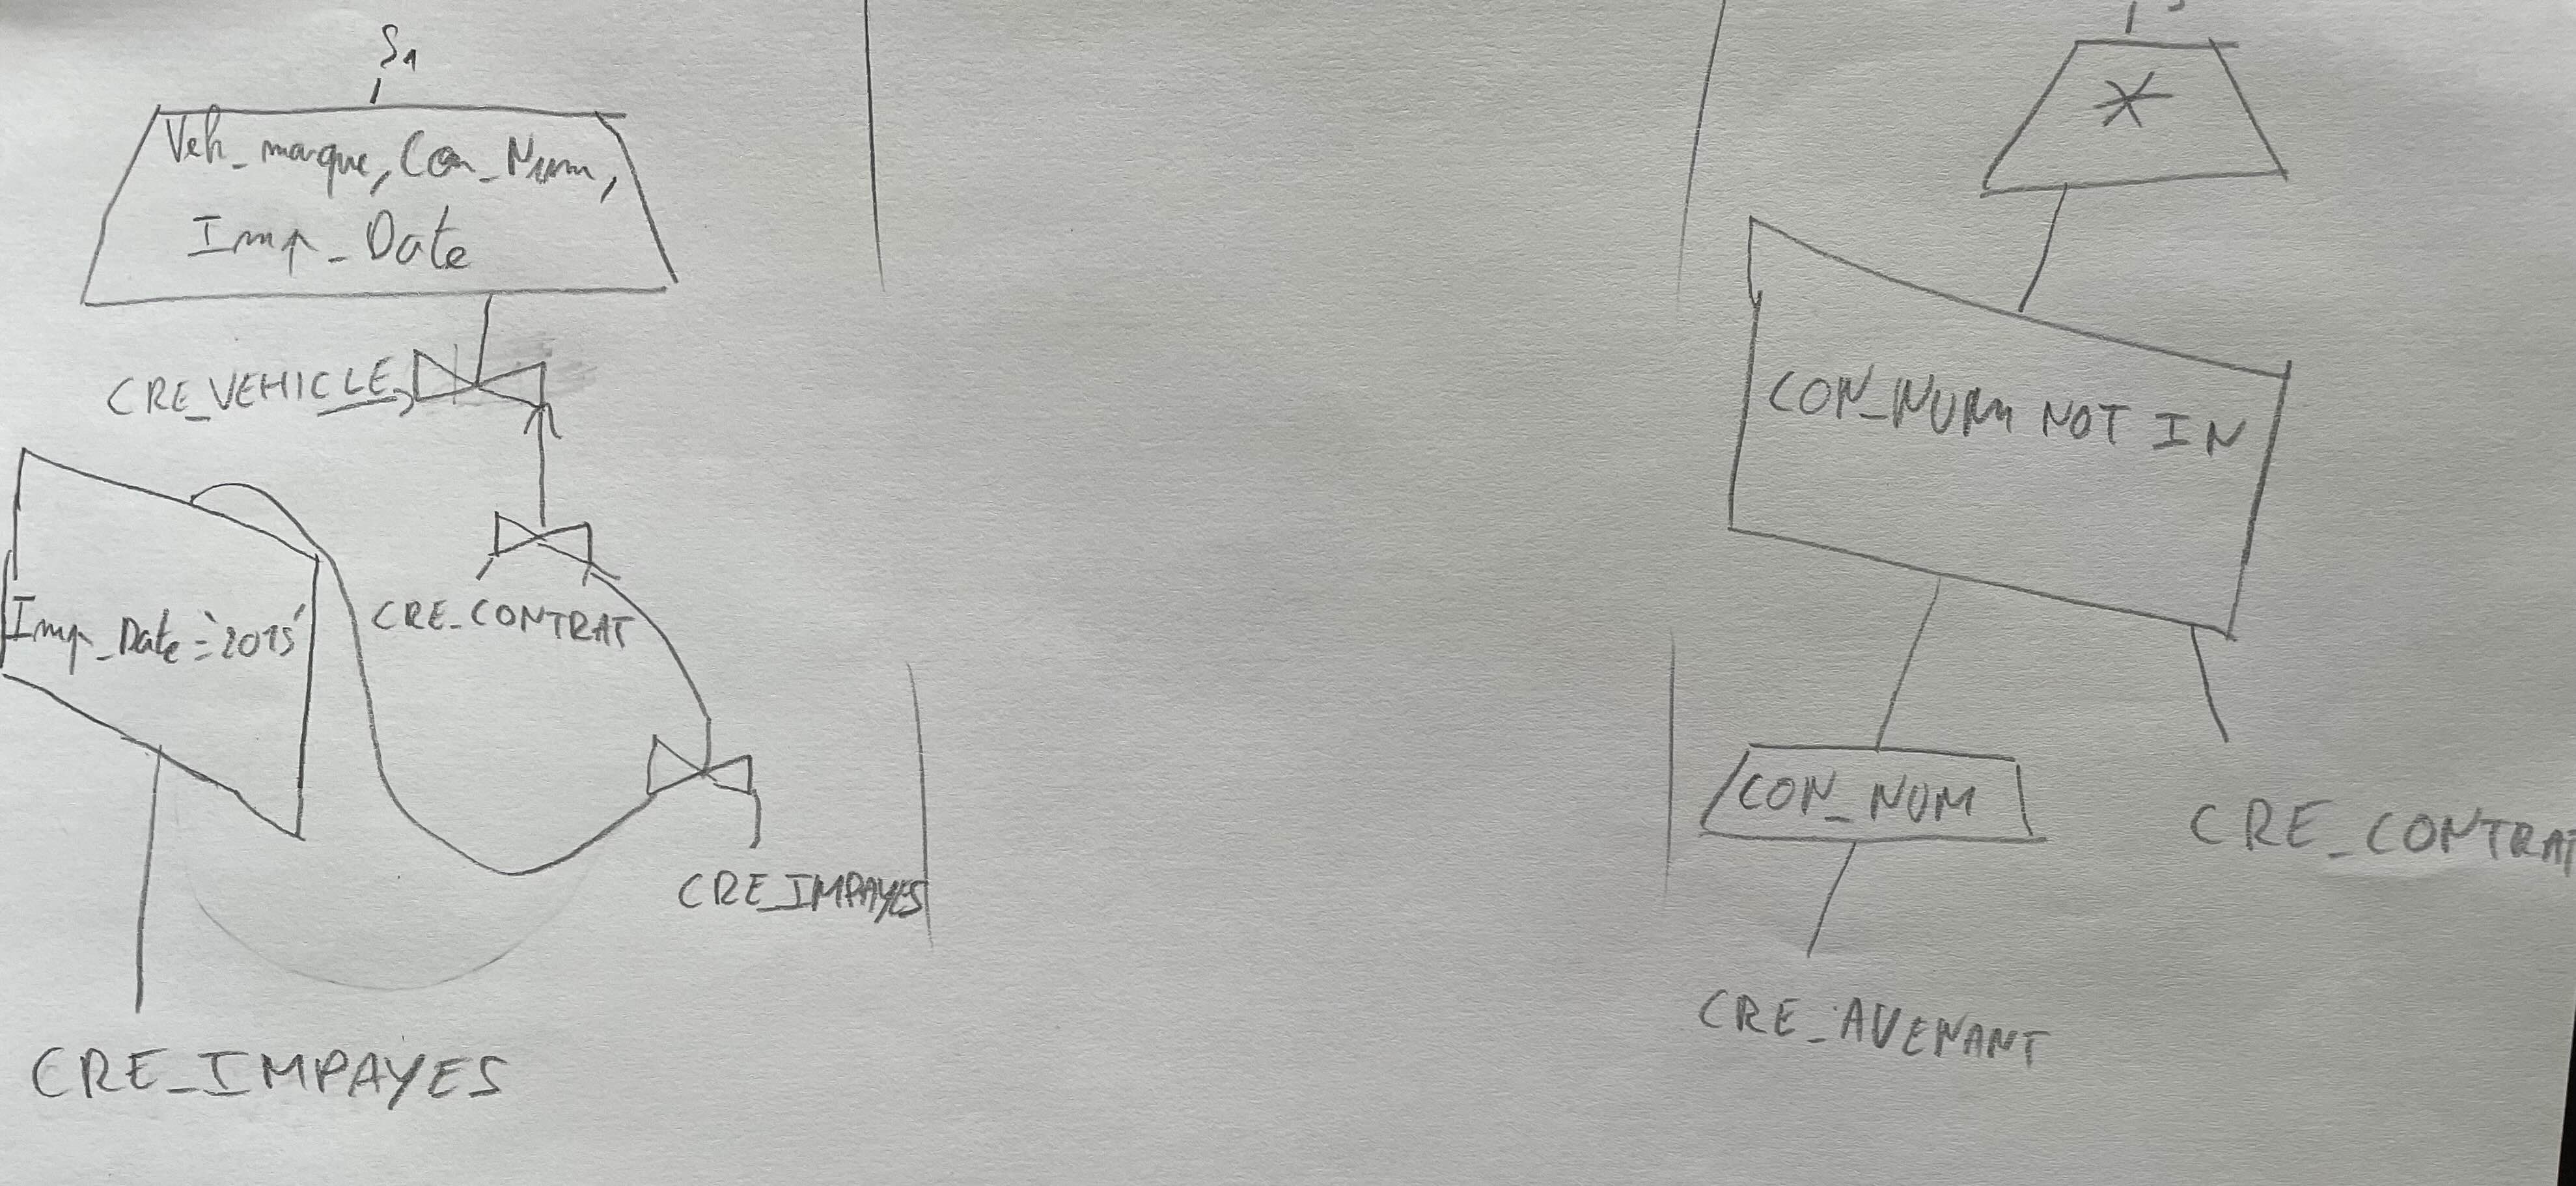 S1
Veh_marque, Con_Num,
Imp_Date
CRE_VEHICLE
Imp_Date='2015'
CRE_CONTRAT
CRE_IMPAYES
CRE_IMPAYES
*
CON_NUM NOT IN
CON_NUM
CRE_CONTRAT
CRE_AVENANT